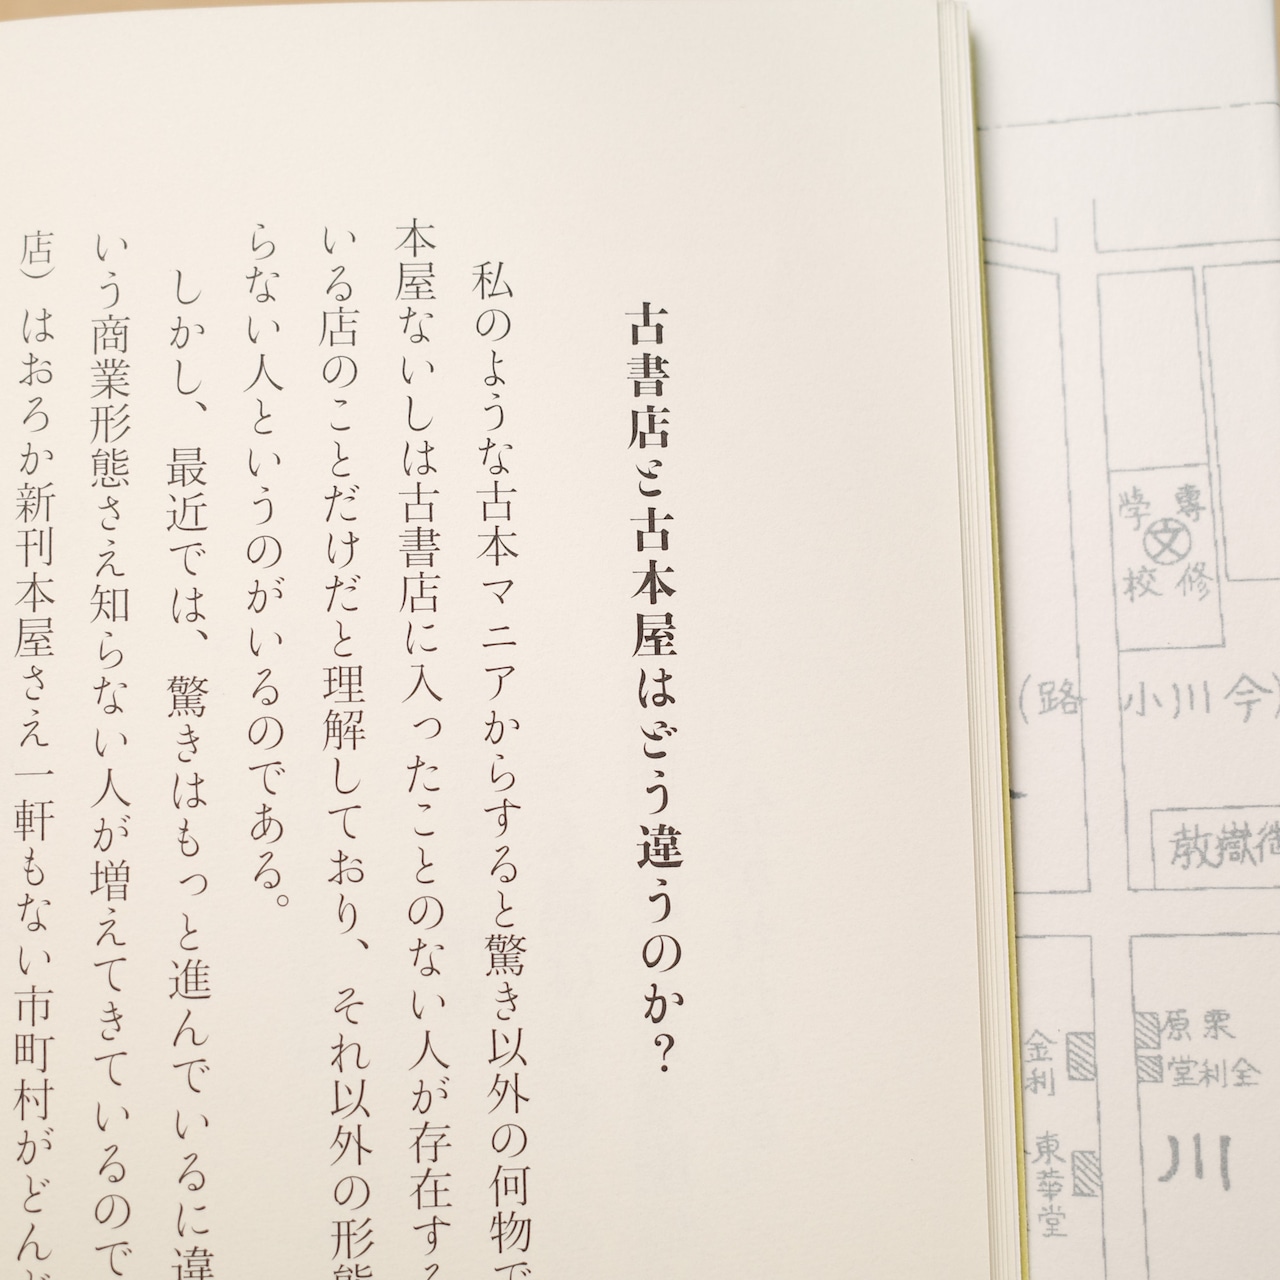 古書店と古本屋はどう違うのか？
私のような古本マニアからすると驚き以外の何物で
本屋ないしは古書店に入ったことのない人が存在する
いる店のことだけだと理解しており、それ以外の形態
らない人というのがいるのである。
しかし、最近では、驚きはもっと進んでいるに違
いう商業形態さえ知らない人が増えてきているので
店）はおろか新刊本屋さえ一軒もない市町村がどんど
専修
学校
文
(路小川今)
教嶽御
栗原
堂利全
金利
東華堂
川